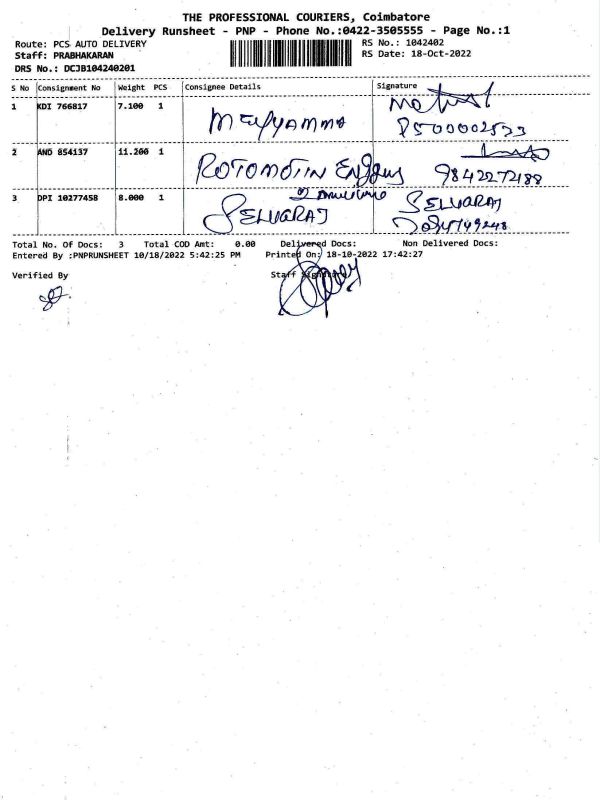 THE PROFESSIONAL COURIERS, Coimbatore
Delivery Runsheet - PNP - Phone No.:0422-3505555 - Page No.:1
Route: PCS AUTO DELIVERY
RS No.: 1042402
Staff: PRABHAKARAN
RS Date: 18-Oct-2022
DRS No.: DCJB104240201
S No Consignment No Weight PCS Consignee Details Signature
1 KDI 766817 7.100 1
2 AND 854137 11.200 1 ROTOMOTIN 9842272188
3 DPI 10277458 8.000 1 SELVARAJ SELVARAJ
Total No. Of Docs: 3 Total COD Amt: 0.00 Delivered Docs: Non Delivered Docs:
Entered By :PNPRUNSHEET 10/18/2022 5:42:25 PM Printed On: 18-10-2022 17:42:27
Verified By Staff Signature